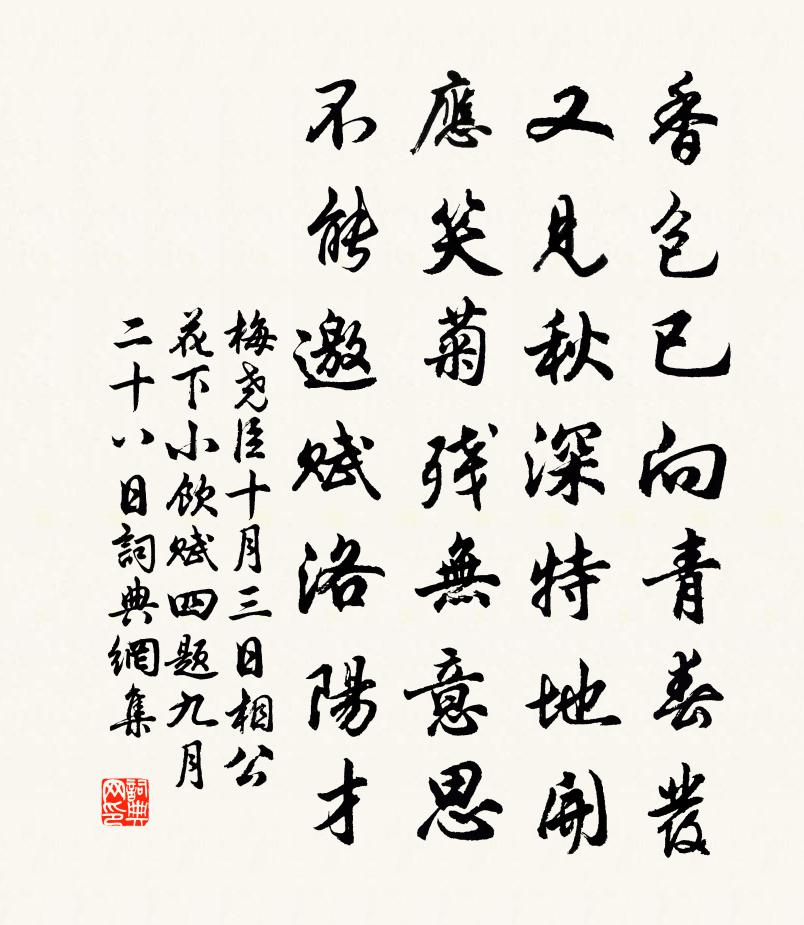 香色已向青春發
又見秋深特地開
應笑菊殘無意思
不能邀賦洛陽才
梅堯臣十月三日相公
花下小飲賦四題九月
二十八日詞典網集
詞典网印